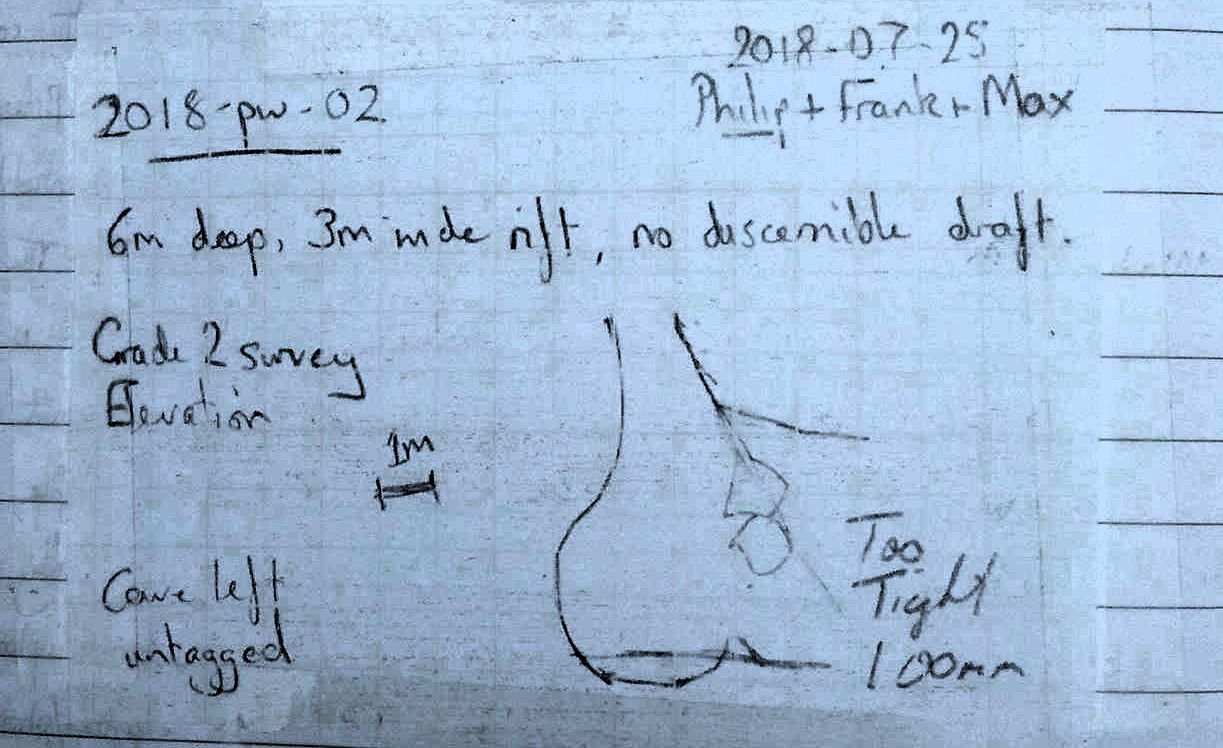 2018-07-25
2018-pw-02
Philip + Frank + Max
6m deep, 3m wide rift, no discernible draft.
Grade 2 survey
Elevation
1m
Cave left
untagged
Too
Tight
100mm